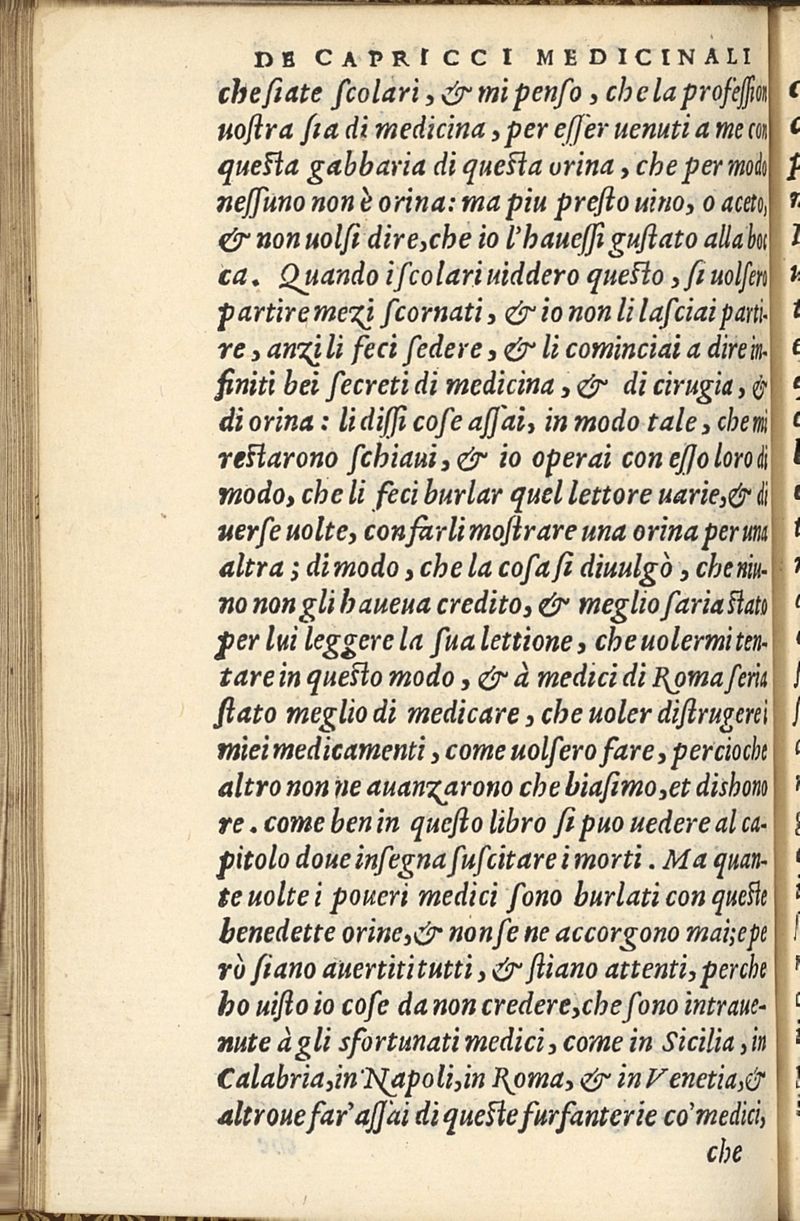 DE CAPRICCI MEDICINALI
che ſiate ſcolari, & mi penſo, che la profeſſion
uoſtra ſia di medicina, per eſſer uenuti a me con
queſta gabbaria di queſta orina, che per modo
neſſuno non è orina: ma piu preſto uino, o aceto,
& non uolſi dire, che io l'haueſſi guſtato alla boc
ca. Quando i ſcolari uiddero queſto, ſi uolſero
partire mezi ſcornati, & io non li laſciai parti-
re, anzi li feci ſedere, & li cominciai a dire in-
finiti bei ſecreti di medicina, & di cirugia, &
di orina: li diſſi coſe aſſai, in modo tale, che mi
reſtarono ſchiaui, & io operai con eſſo loro di
modo, che li feci burlar quel lettore uarie, & di
uerſe uolte, con farli moſtrare una orina per una
altra; di modo, che la coſa ſi diuulgò, che niu-
no non gli haueua credito, & meglio ſaria ſtato
per lui leggere la ſua lettione, che uolermi ten-
tare in queſto modo, & à medici di Roma ſeria
ſtato meglio di medicare, che uoler diſtrugere i
miei medicamenti, come uolſero fare, percioche
altro non ne auanzarono che biaſimo, et dishono
re. come ben in queſto libro ſi puo uedere al ca-
pitolo doue inſegna ſuſcitare i morti. Ma quan-
te uolte i poueri medici ſono burlati con queſte
benedette orine, & non ſe ne accorgono mai; e pe
rò ſiano auertiti tutti, & ſtiano attenti, perche
ho uiſto io coſe da non credere, che ſono intraue-
nute à gli sfortunati medici, come in Sicilia, in
Calabria, in Napoli, in Roma, & in Venetia, &
altroue far' aſſai di queſte furfanterie co' medici,
che